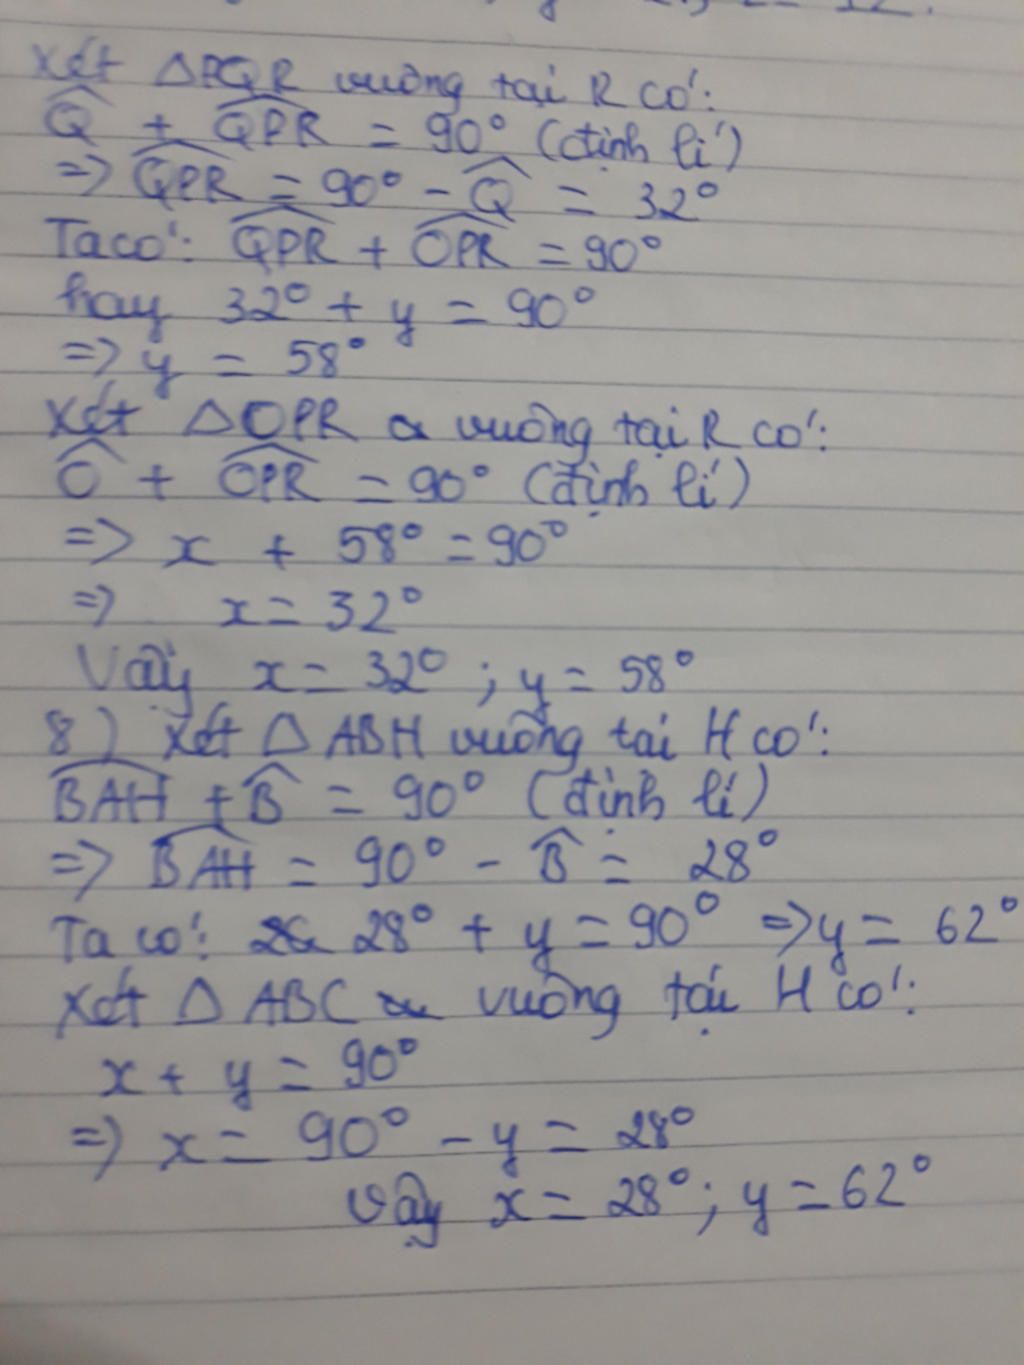 Xét △PQR vuông tại R có:
Q̂ + QPR̂ = 90° (định lí)
=> QPR̂ = 90° - Q̂ = 32°
Ta có: QPR̂ + OPR̂ = 90°
hay 32° + y = 90°
=> y = 58°
Xét △OPR vuông tại R có:
Ô + OPR̂ = 90° (định lí)
=> x + 58° = 90°
=> x = 32°
Vậy x = 32° ; y = 58°
8) Xét △ABH vuông tại H có:
BAĤ + B̂ = 90° (định lí)
=> BAĤ = 90° - B̂ = 28°
Ta có: 28° + y = 90° => y = 62°
Xét △ABC vuông tại H có:
x + y = 90°
=> x = 90° - y = 28°
Vậy x = 28° ; y = 62°